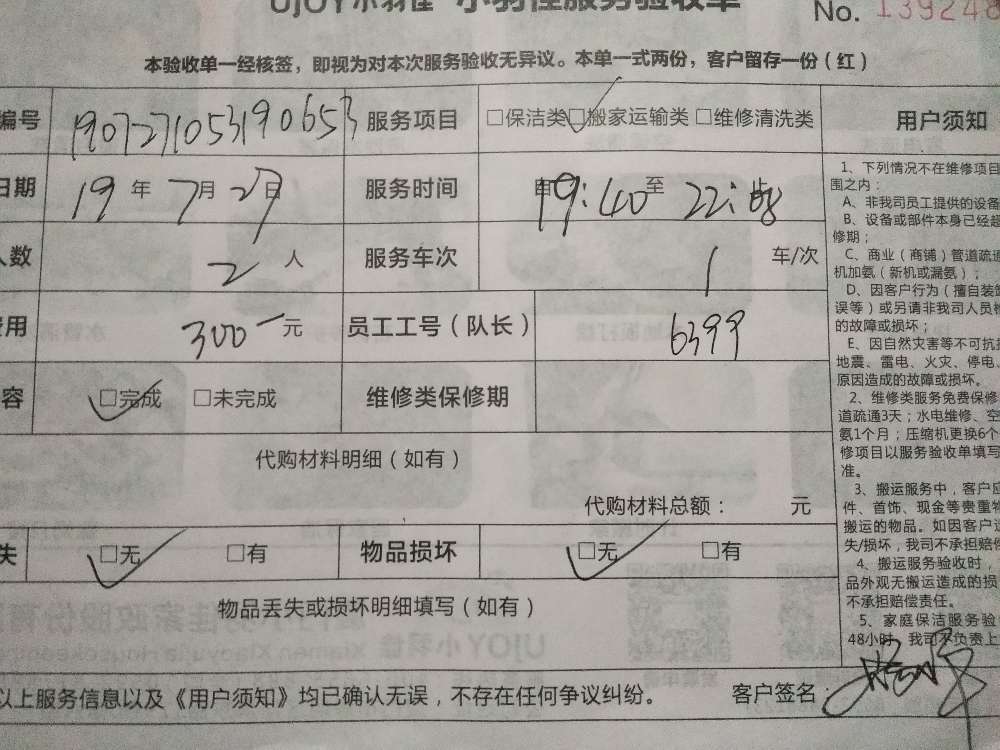 UJOY小羽佳 小羽佳服务验收单
No. 139248
本验收单一经核签，即视为对本次服务验收无异议。本单一式两份，客户留存一份（红）
编号 1907271053190653 服务项目 □保洁类 □搬家运输类 □维修清洗类 用户须知
日期 19年7月27日 服务时间 19:40至22:
人数 2人 服务车次 1 车/次
费用 300一元 员工工号（队长） 6399
容 □完成 □未完成 维修类保修期
代购材料明细（如有）
代购材料总额： 元
失 □无 □有 物品损坏 □无 □有
物品丢失或损坏明细填写（如有）
以上服务信息以及《用户须知》均已确认无误，不存在任何争议纠纷。 客户签名：
1、下列情况不在维修项目
围之内：
A、非我司员工提供的设备
B、设备或部件本身已经超
修期；
C、商业（商铺）管道疏通
机加氨（新机或漏氨）；
D、因客户行为（擅自装卸
误等）或另请非我司人员
的故障或损坏；
E、因自然灾害等不可抗
地震、雷电、火灾、停电、
原因造成的故障或损坏。
2、维修类服务免费保修
道疏通3天；水电维修、空
氨1个月；压缩机更换6个
修项目以服务验收单填写
准。
3、搬运服务中，客户应
件、首饰、现金等贵重物
搬运的物品。如因客户
失/损坏，我司不承担赔偿
4、搬运服务验收时，
品外观无搬运造成的损
不承担赔偿责任。
5、家庭保洁服务验
48小时，我司不负责上